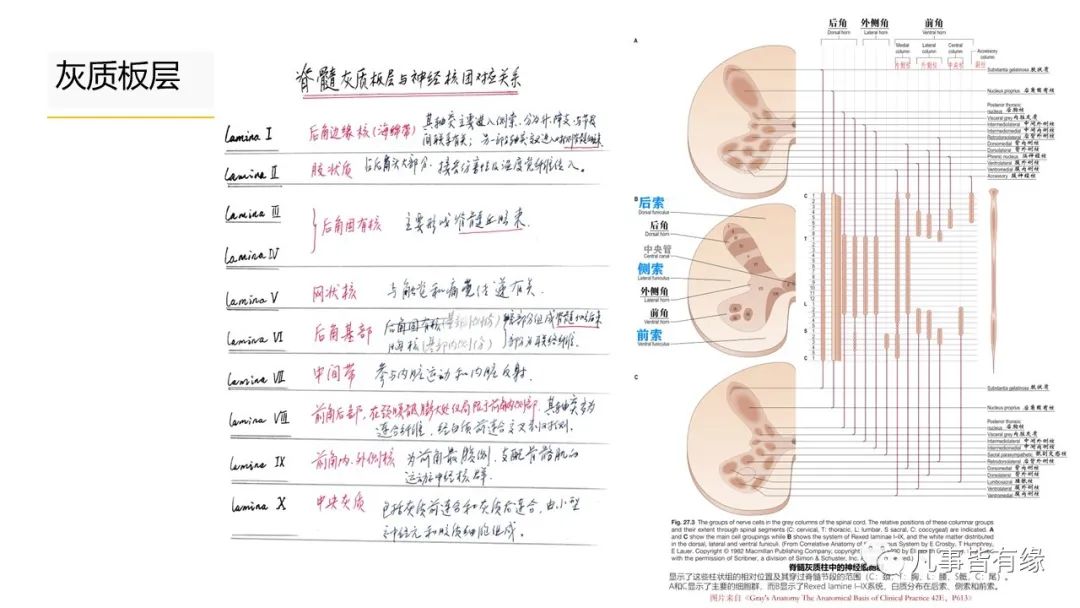 灰质板层
脊髓灰质板层与神经核团对应关系
Lamina I 后角边缘核(海绵带)
Lamina II 胶状质 占后角头大部分,接受伤害性及温度觉纤维传入。
Lamina III
后角固有核 主要形成脊髓丘脑束
Lamina IV
Lamina V 网状核 与触觉和痛觉传递有关.
Lamina VI 后角基部
Lamina VII 中间带 参与内脏运动和内脏反射.
Lamina VIII 前角后部,在颈腰骶膨大处仅局限于前角内侧部,其轴突多为
连合纤维,经白质前连合交叉到对侧.
Lamina IX 前角内、外侧核 为前角最腹侧,支配骨骼肌的
运动神经核群.
Lamina X 中央灰质 包括灰质前连合和灰质后连合,由小型
神经元和胶质细胞组成.
后角 外侧角 前角
Dorsal horn Lateral horn Ventral horn
Medial column Lateral column Central column Accessory column
内侧柱 外侧柱 中央柱 副柱
A
Substantia gelatinosa 胶状质
Nucleus proprius 后角固有核
Posterior thoracic
nucleus 后胸核
Visceral grey 内脏灰质
Intermediolateral 中间外侧核
Intermediomedial 中间内侧核
Retrodorsolateral 后背外侧核
Dorsomedial 背内侧核
Dorsolateral 背外侧核
Phrenic nucleus 膈神经核
Ventrolateral 腹外侧核
Ventromedial 腹内侧核
Accessory 副神经核
B
后索
Dorsal funiculus
后角
Dorsal horn
中央管
Central canal
侧索
Lateral funiculus
外侧角
Lateral horn
前角
Ventral horn
前索
Ventral funiculus
C
T
L
S
C
C
Substantia gelatinosa 胶状质
Nucleus proprius 后角固有核
Posterior thoracic
nucleus 后胸核
Visceral grey 内脏灰质
Intermediolateral 中间外侧核
Intermediomedial 中间内侧核
Sacral parasympathetic 骶副交感核
Retrodorsolateral 后背外侧核
Dorsomedial 背内侧核
Dorsolateral 背外侧核
Lumbosacral 腰骶核
Ventrolateral 腹外侧核
Ventromedial 腹内侧核
Fig. 27.3 The groups of nerve cells in the grey columns of the spinal cord. The relative positions of these columnar groups
and their extent through spinal segments (C: cervical, T: thoracic, L: lumbar, S sacral, C: coccygeal) are indicated. A
and C show the main cell groupings while B shows the system of Rexed laminae I–IX, and the white matter distributed
in the dorsal, lateral and ventral funiculi. (From Correlative Anatomy of System by E Crosby, T Humphrey,
E Lauer. Copyright © 1962 Macmillan Publishing Company, copyright by
with the permission of Scribner, a division of Simon & Schuster, Inc.
脊髓灰质柱中的神经
显示了这些柱状组的相对位置及其穿过脊髓节段的范围(C:颈,T:胸,L:腰,S骶,C:尾)。
A和C显示了主要的细胞群,而B显示了Rexed lamine I-IX系统,白质分布在后索、侧索和前索。
图片来自《Gray's Anatomy The Anatomical Basis of Clinical Practice 42E, P613》
凡事皆有缘